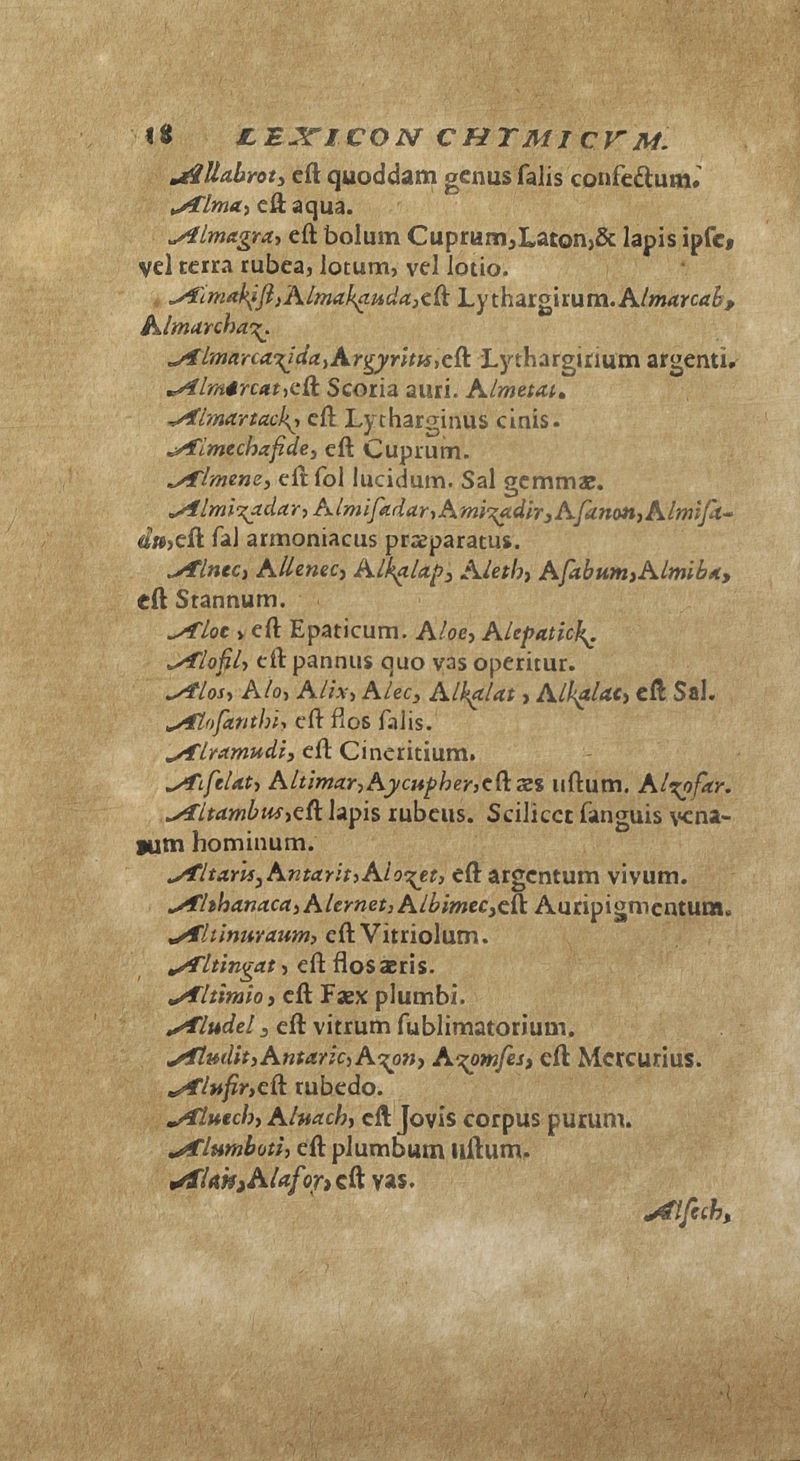 18 LEXICON CHYMICVM.
Allabrot, eſt quoddam genus ſalis confectum.
Alma, eſt aqua.
Almagra, eſt bolum Cuprum, Laton, & lapis ipſe,
vel terra rubea, lotum, vel lotio.
Almakiſt, Almakauda, eſt Lythargirum. Almarcab,
Almarchaz.
Almarcazida, Argyritis, eſt Lythargirium argenti.
Almarcat, eſt Scoria auri. Almetat.
Almartack, eſt Lytharginus cinis.
Almechaſide, eſt Cuprum.
Almene, eſt ſol lucidum. Sal gemmæ.
Almizadar, Almiſadar, Amizadir, Aſanon, Almiſa-
du, eſt ſal armoniacus præparatus.
Alnec, Allenec, Alkalap, Aleth, Aſabum, Almiba,
eſt Stannum.
Aloe, eſt Epaticum. Aloe, Alepatick.
Alofil, eſt pannus quo vas operitur.
Alos, Alo, Alix, Alec, Alkalat, Alkalac, eſt Sal.
Aloſanthi, eſt flos ſalis.
Alramudi, eſt Cineritium.
Alſelat, Altimar, Aycupher, eſt æs uſtum. Alzofar.
Altambus, eſt lapis rubeus. Scilicet ſanguis vena-
rum hominum.
Altaris, Antarit, Alozet, eſt argentum vivum.
Althanaca, Alernet, Albimec, eſt Auripigmentum.
Altinuraum, eſt Vitriolum.
Altingat, eſt flos æris.
Altimio, eſt Fæx plumbi.
Aludel, eſt vitrum ſublimatorium.
Aludit, Antaric, Azon, Azomſes, eſt Mercurius.
Aluſir, eſt rubedo.
Aluech, Aluach, eſt Jovis corpus purum.
Alumboti, eſt plumbum uſtum.
Alaus, Alafor, eſt vas.
Alſech,